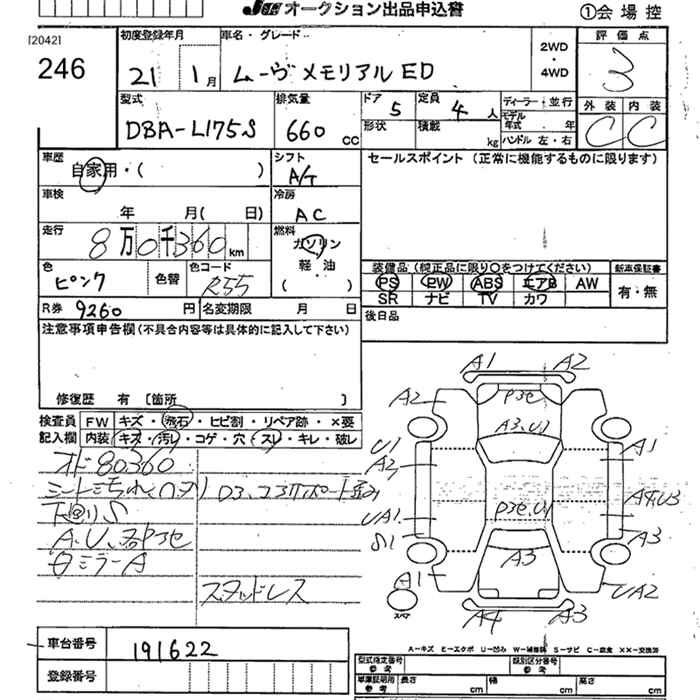 JU オークション出品申込書
①会場控
[20421
246
初度登録年月
21 1月
車名・グレード
ムーヴ メモリアルED
2WD
・
4WD
評価点
3
型式
DBA-L175S
排気量
660 cc
ドア 5
定員 4 人
形状
積載 kg
ディーラー・並行
モデル年式 年
ハンドル 左・右
外装 内装
C C
車歴
自家用・( )
シフト
A/T
セールスポイント (正常に機能するものに限ります)
車検
年 月( 日)
冷房
AC
走行
8万0千360km
燃料
ガソリン
軽・油
( )
色
ピンク
色替
色コード
R55
装備品 (純正品に限り○をつけてください)
新車保証書
PS PW ABS エアB AW
SR ナビ TV カワ
有・無
R券 9260円
名変期限 月 日
後日品
注意事項申告欄(不具合内容等は具体的に記入して下さい)
修復歴 有 [箇所 ]
検査員記入欄
FW キズ・飛石・ヒビ割・リペア跡・×要
内装 キズ・汚レ・コゲ・穴・スレ・キレ・破レ
オド80360
下回りS
A.U.
ミラーA
スタッドレス
A1 A2
A2 P3セ
A3.U1
U1 A1
A2
UA1 P3セ.U1
S1 A3
A3
A1 UA2
スペア
A4 A3
A-キズ E-エクボ U-凹み W-補修跡 S-サビ C-腐食 XX-交換済
車台番号 191622
登録番号
型式指定番号 参考
類別区分番号 参考
車庫証明用 参考
長さ cm
幅 cm
高さ cm